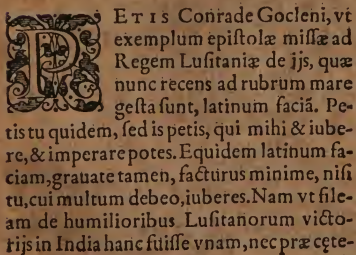 PETIS Conrade Gocleni, vt
exemplum epistolæ missæ ad
Regem Lusitaniæ de ijs, quæ
nunc recens ad rubrum mare
gesta sunt, latinum faciā. Pe-
tis tu quidem, sed is petis, qui mihi & iube-
re, & imperare potes. Equidem latinum fa-
ciam, grauate tamen, facturus minime, nisi
tu, cui multum debeo, iuberes. Nam vt sile-
am de humilioribus Lusitanorum victo-
rijs in India hanc fuisse vnam, nec præ cęte-